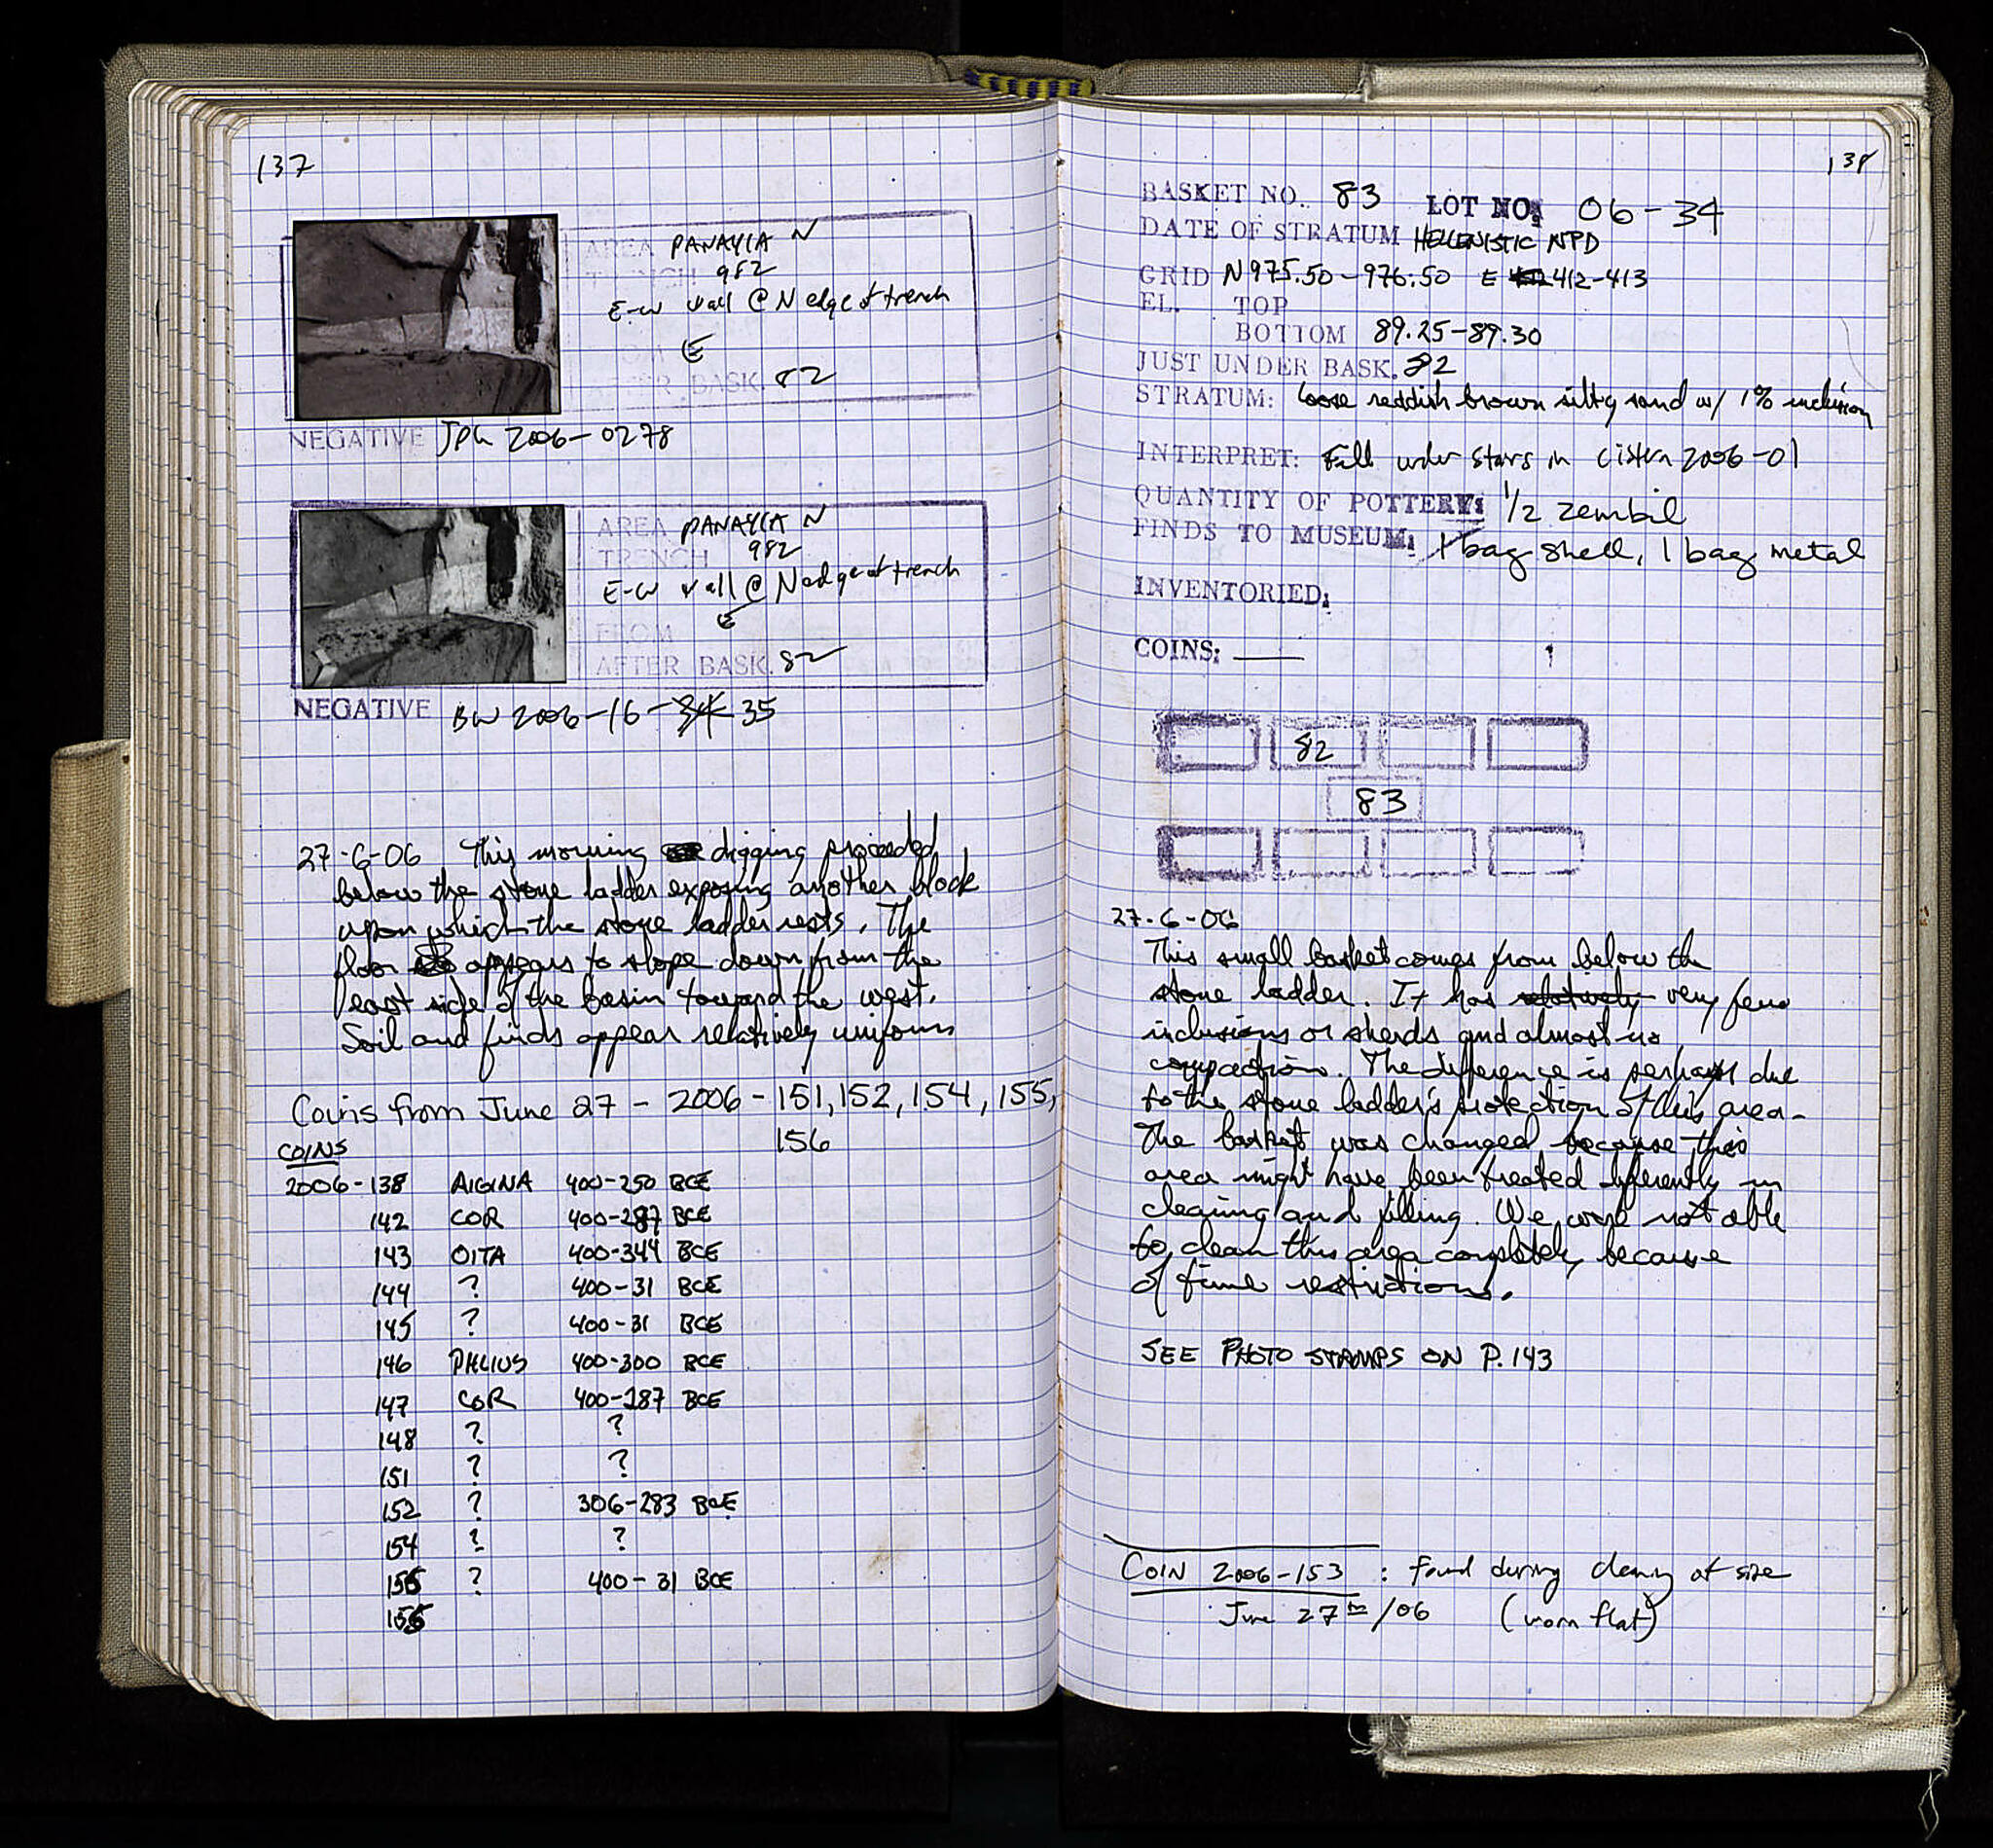 137
AREA PANAYIA N
TRENCH 982
E-W wall @ N edge of trench
FROM E
AFTER BASK. 82
NEGATIVE JPG 2006-0278
AREA PANAYIA N
TRENCH 982
E-W wall @ N edge of trench
FROM E
AFTER BASK. 82
NEGATIVE BW 2006-16-34 35
27-6-06 This morning digging proceeded
below the stone ladder exposing another block
upon which the stone ladder rests. The
floor appears to slope down from the
east side of the basin toward the west.
Soil and finds appear relatively uniform
Coins from June 27 - 2006 - 151, 152, 154, 155,
156
COINS
2006-138 AIGINA 400-250 BCE
142 COR 400-287 BCE
143 OITA 400-344 BCE
144 ? 400-31 BCE
145 ? 400-31 BCE
146 PHLIUS 400-300 BCE
147 COR 400-287 BCE
148 ? ?
151 ? ?
152 ? 306-283 BCE
154 ? ?
155 ? 400-31 BCE
156
138
BASKET NO. 83 LOT NO: 06-34
DATE OF STRATUM HELLENISTIC NPD
GRID N975.50-976.50 E 412-413
EL. TOP
BOTTOM 89.25-89.30
JUST UNDER BASK. 82
STRATUM: loose reddish brown silty sand w/ 1% inclusion
INTERPRET: Fill under stairs in cistern 2006-01
QUANTITY OF POTTERY: 1/2 zembil
FINDS TO MUSEUM: 1 bag shell, 1 bag metal
INVENTORIED:
COINS: —
82
83
27-6-06
This small basket comes from below the
stone ladder. It has relatively very few
inclusions or sherds and almost no
compaction. The difference is perhaps due
to the stone ladder's protection of this area.
The basket was changed because this
area might have been treated differently in
cleaning and filling. We were not able
to clean this area completely because
of time restrictions.
SEE PHOTO STAMPS ON P. 143
COIN 2006-153 : found during cleaning at size
June 27th/06 (worn flat)